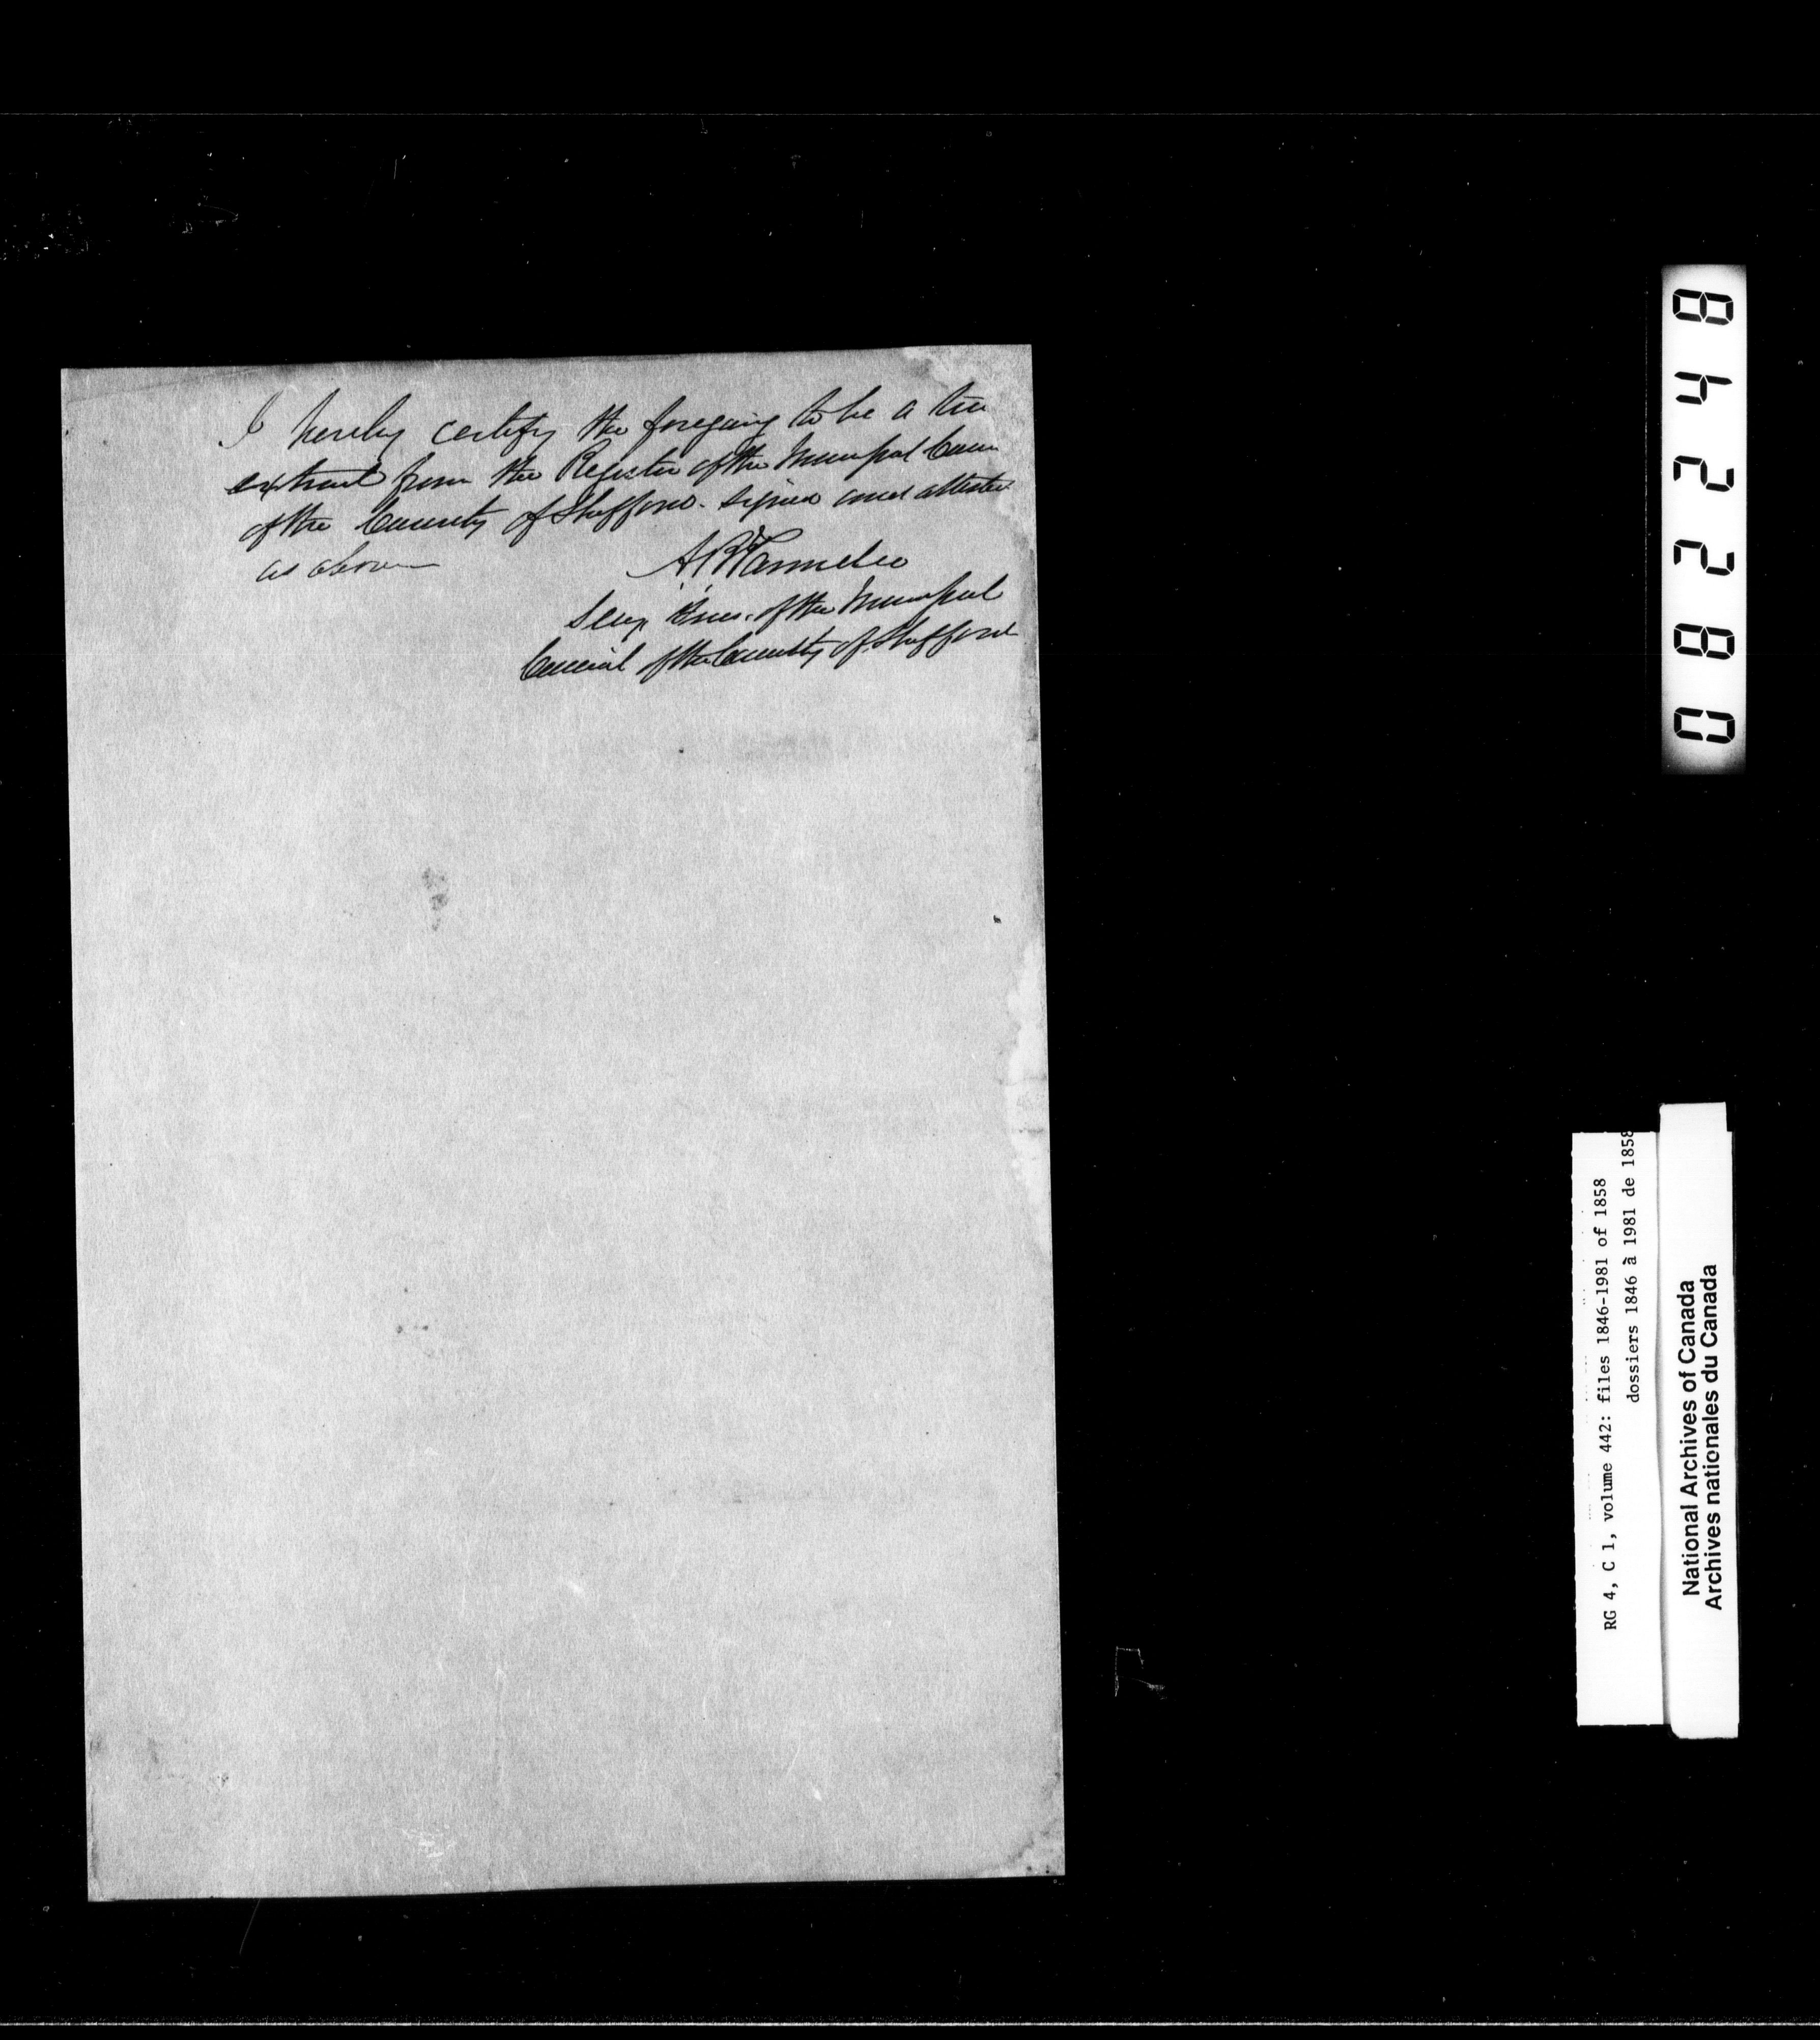 I hereby certify the foregoing to be a true
extract from the Register of the Municipal Coun
of the County of Shefford. signed and attested
as above
A B Parmelee
Secy Treas. of the Municipal
Council of the County of Shefford
082248
RG 4, C 1, volume 442: files 1846-1981 of 1858
dossiers 1846 à 1981 de 1858
National Archives of Canada
Archives nationales du Canada